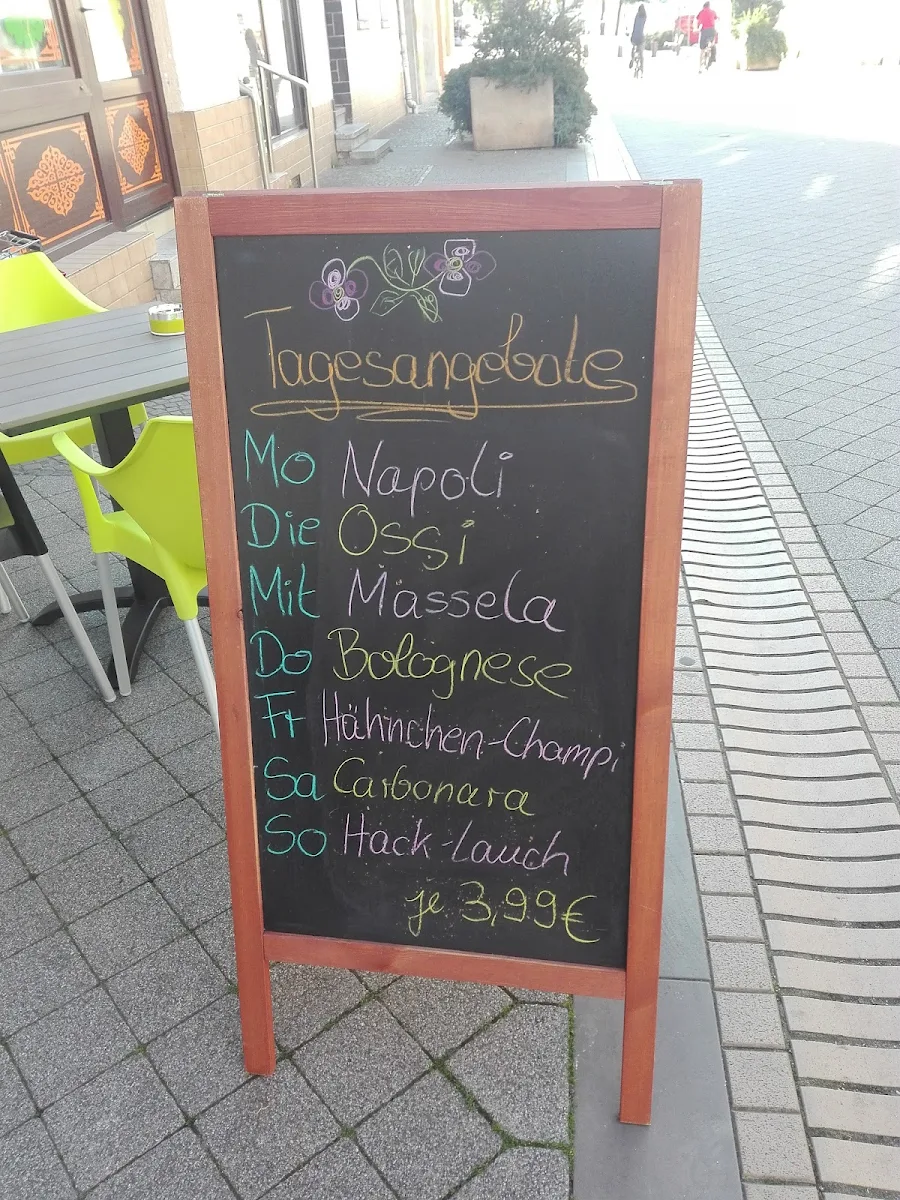 Tagesangebote
Mo Napoli
Die Ossi
Mit Massela
Do Bolognese
Fr Hähnchen-Champi
Sa Carbonara
So Hack-Lauch
je 3,99€